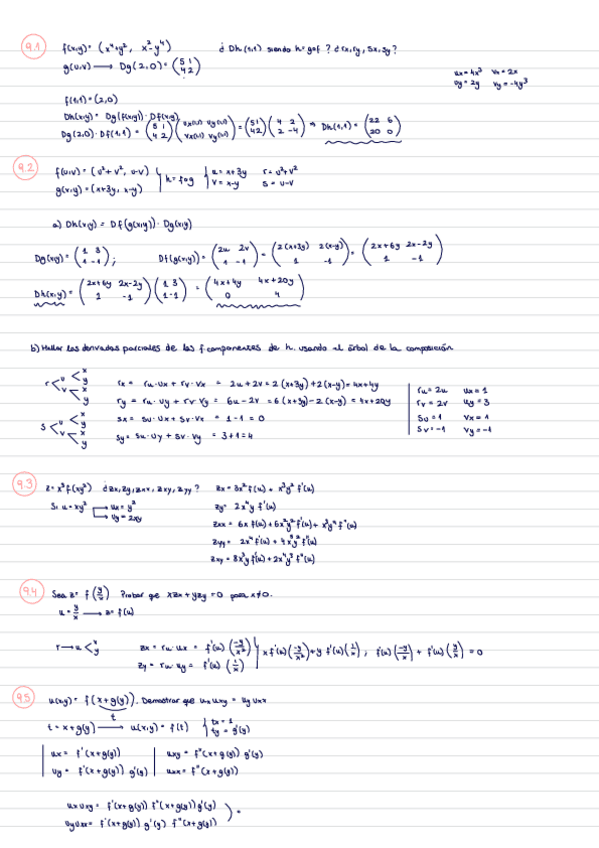 9.1
f(x,y) = (x⁴+y², x²-y⁴) ¿ Dh(1,1) siendo h=gof ? ¿rx, ry, sx, sy?
g(u,v) → Dg(2,0) = (5 1 / 4 2)
ux = 4x³ vx = 2x
uy = 2y vy = -4y³
f(1,1) = (2,0)
Dh(x,y) = Dg(f(x,y)) · Df(x,y)
Dg(2,0) · Df(1,1) = (5 1 / 4 2) (ux(1,1) uy(1,1) / vx(1,1) vy(1,1)) = (5 1 / 4 2) (4 2 / 2 -4) ⇒ Dh(1,1) = (22 6 / 20 0)
9.2
f(u,v) = (u²+v², u-v) h = fog u = x+3y r = u²+v²
g(x,y) = (x+3y, x-y) v = x-y s = u-v
a) Dh(x,y) = Df(g(x,y)) · Dg(x,y)
Dg(x,y) = (1 3 / 1 -1) ; Df(g(x,y)) = (2u 2v / 1 -1) = (2(x+3y) 2(x-y) / 1 -1) = (2x+6y 2x-2y / 1 -1)
Dh(x,y) = (2x+6y 2x-2y / 1 -1) (1 3 / 1 -1) = (4x+4y 4x+20y / 0 4)
b) Hallar las derivadas parciales de las f. componentes de h usando el árbol de la composición
r < u < x y
v < x y
s < u < x y
v < x y
rx = ru · ux + rv · vx = 2u + 2v = 2(x+3y) + 2(x-y) = 4x+4y
ry = ru · uy + rv · vy = 6u - 2v = 6(x+3y) - 2(x-y) = 4x+20y
sx = su · ux + sv · vx = 1-1 = 0
sy = su · uy + sv · vy = 3+1 = 4
ru = 2u ux = 1
rv = 2v uy = 3
su = 1 vx = 1
sv = -1 vy = -1
9.3
z = x³ f(xy²) ¿ zx, zy, zxx, zxy, zyy ? zx = 3x² f(u) + x³y² f'(u)
Si u = xy² → ux = y² zy = 2x⁴y f'(u)
uy = 2xy
zxx = 6x f(u) + 6x²y² f'(u) + x³y⁴ f''(u)
zyy = 2x⁴ f'(u) + 4x⁵y² f''(u)
zxy = 8x³y f'(u) + 2x⁴y³ f''(u)
9.4
Sea z = f(y/x) Probar qe xzx + yzy = 0 para x≠0.
u = y/x → z = f(u)
r → u < x y zx = ru · ux = f'(u) (-y/x²) x f'(u) (-y/x²) + y f'(u) (1/x) ; f'(u) (-y/x) + f'(u) (y/x) = 0
zy = ru · uy = f'(u) (1/x)
9.5
u(x,y) = f(x+g(y)). Demostrar que ux uxy = uy uxx
t
t = x+g(y) → u(x,y) = f(t) tx = 1
ty = g'(y)
ux = f'(x+g(y)) uxy = f''(x+g(y)) g'(y)
uy = f'(x+g(y)) g'(y) uxx = f''(x+g(y))
ux uxy = f'(x+g(y)) f''(x+g(y)) g'(y)
uy uxx = f'(x+g(y)) g'(y) f''(x+g(y)) =